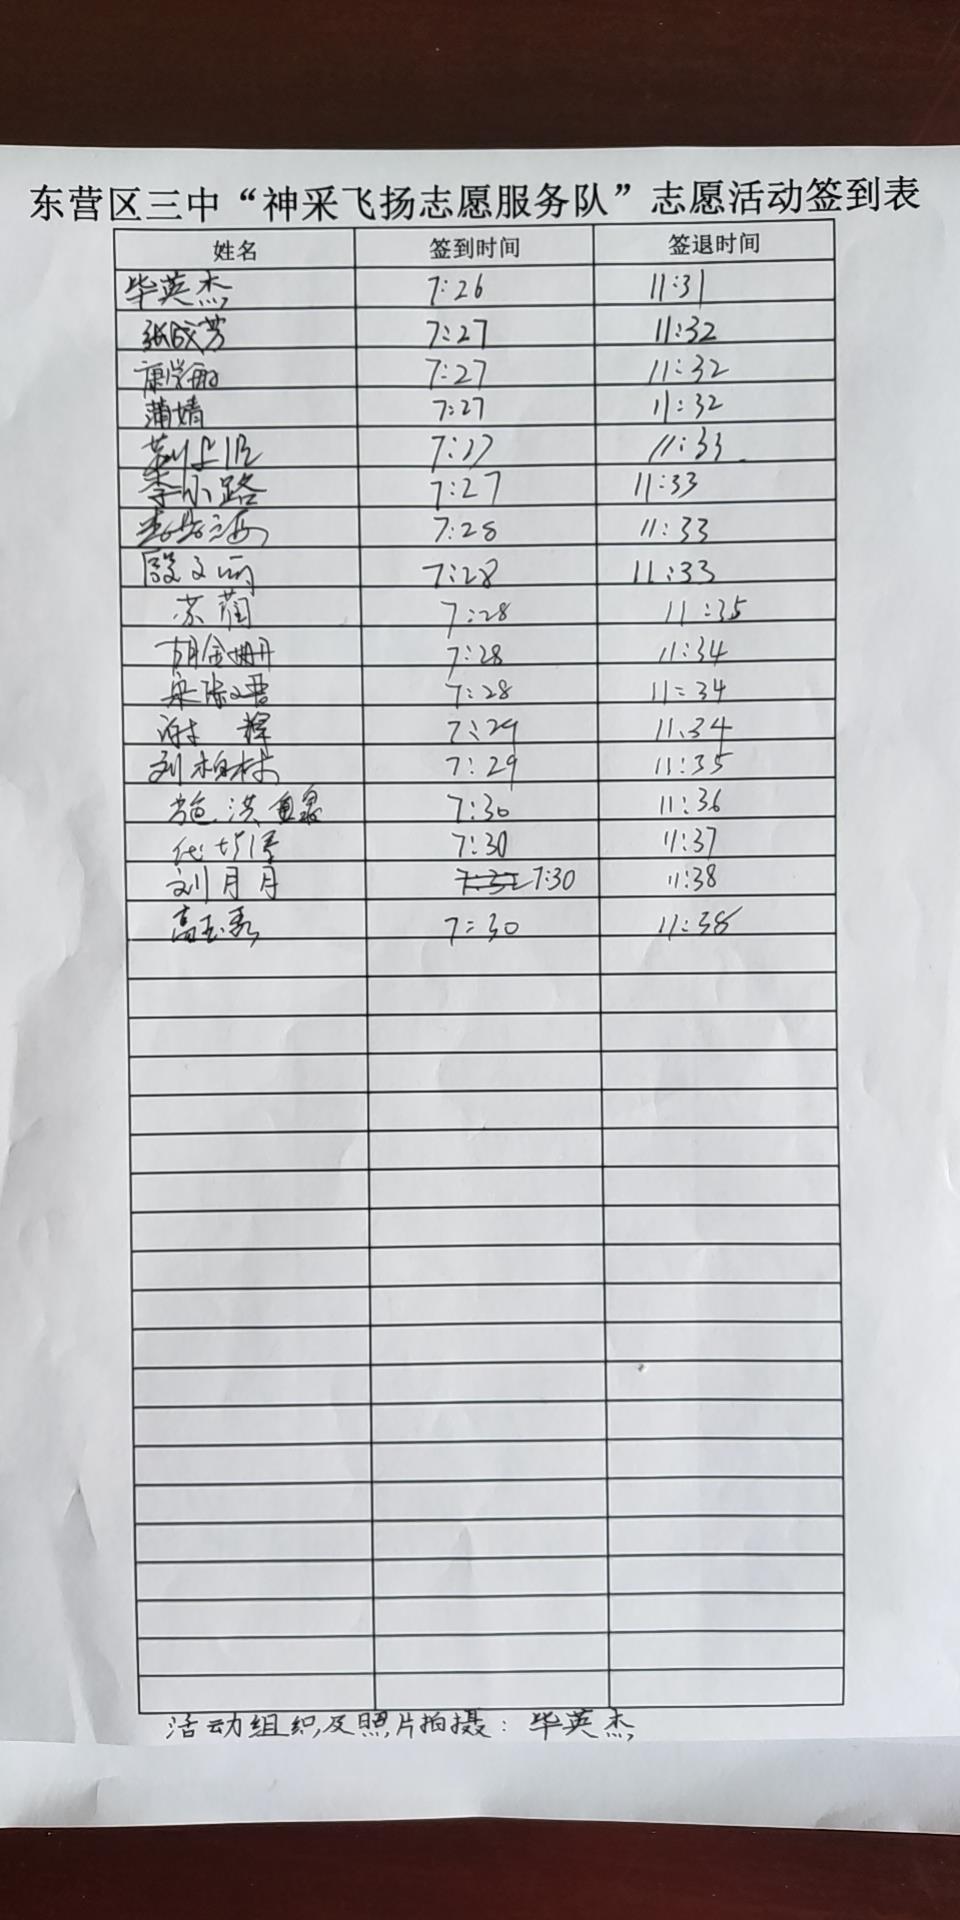 东营区三中“神采飞扬志愿服务队”志愿活动签到表
姓名 签到时间 签退时间
毕英杰 7:26 11:31
张成芳 7:27 11:32
康学敏 7:27 11:32
蒲婧 7:27 11:32
7:27 11:33
李小路 7:27 11:33
7:28 11:33
殷文丽 7:28 11:33
苏蔺 7:28 11:35
胡金珊 7:28 11:34
7:28 11:34
谢辉 7:29 11:34
刘柏林 7:29 11:35
7:30 11:36
7:30 11:37
刘月月 7:30 11:38
高玉秀 7:30 11:38
活动组织及照片拍摄：毕英杰